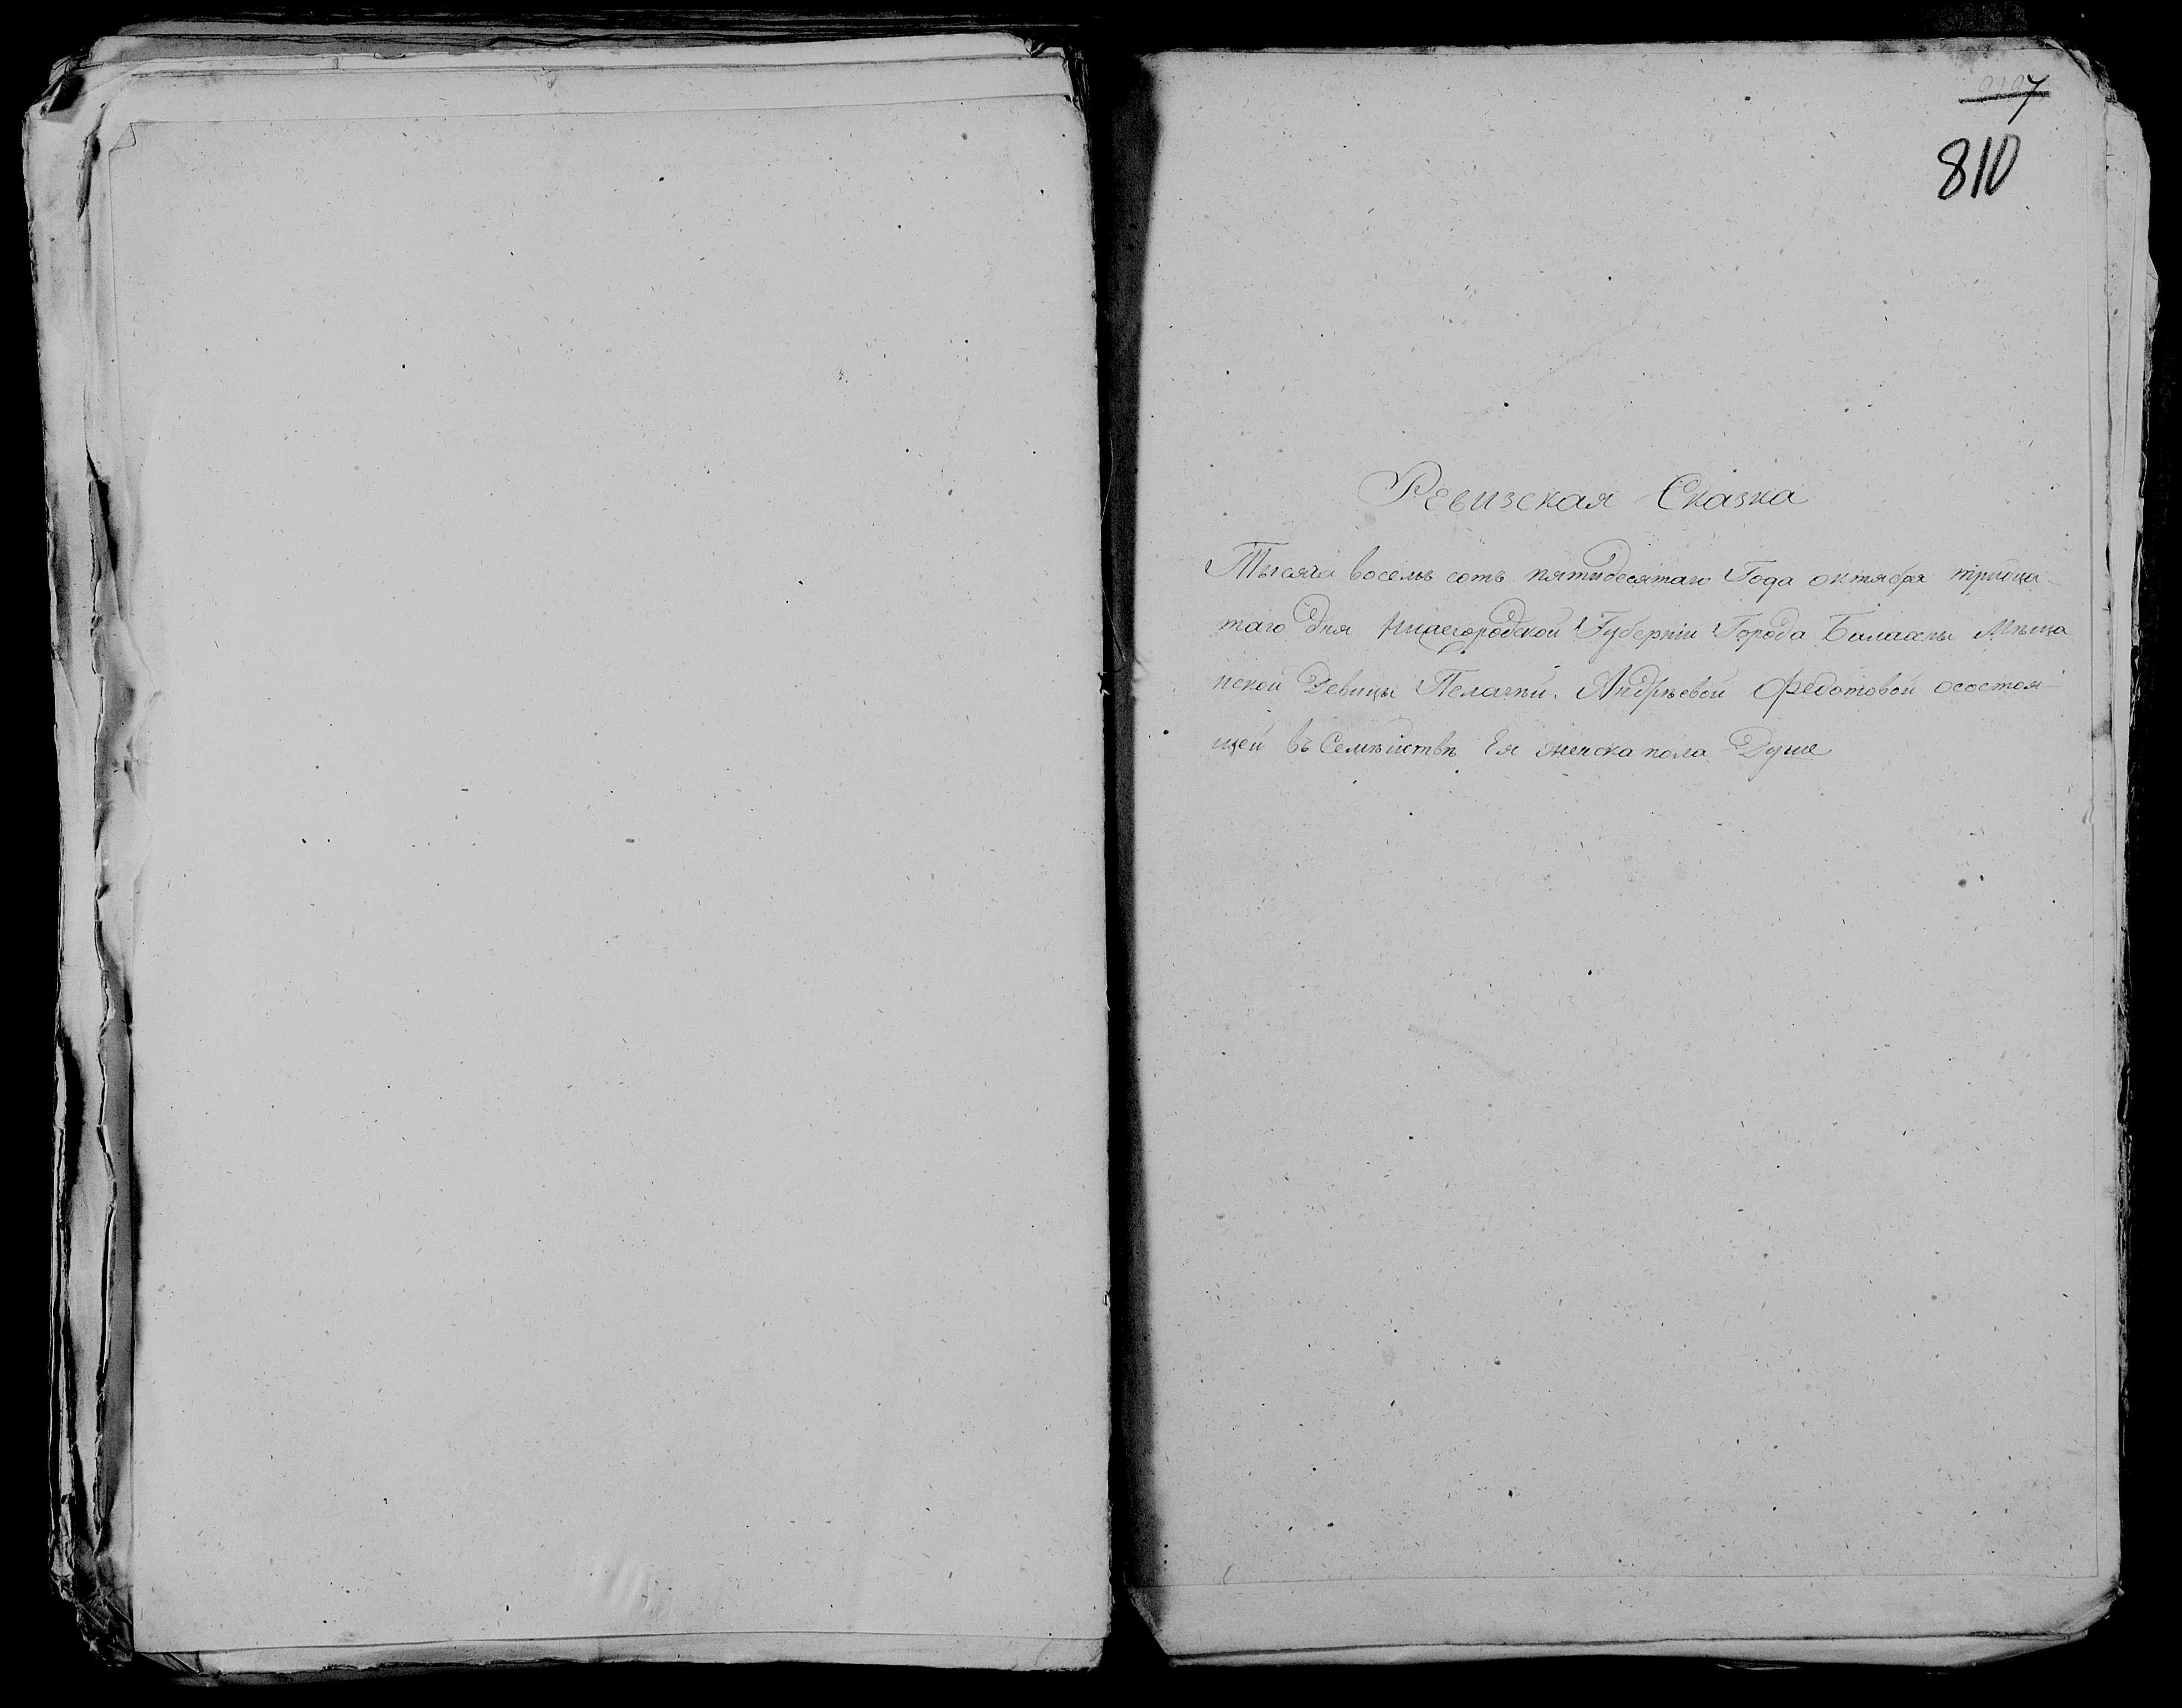 810
Ревизская Сказка
Тысяча восемь сотъ пятидесятаго Года октября тридца-
таго Дня Нижегородской Губерніи Города Балахны Мѣща
нской Девицы Пелагѣи Андрѣевой Федотовой осостоя-
щей въ Семѣйствѣ Ея женска пола Душе